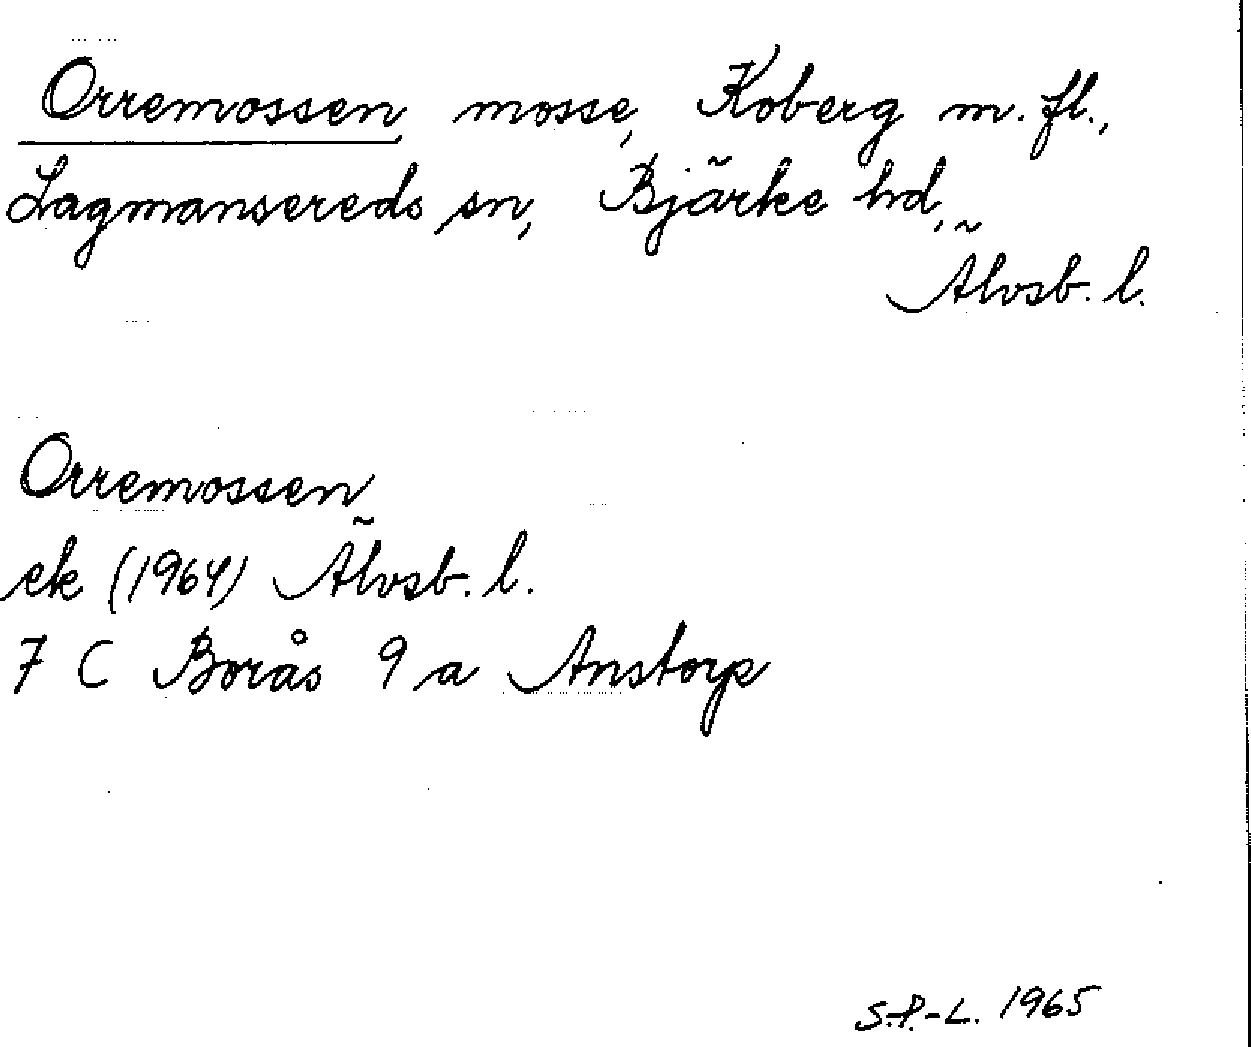 Orremossen, mosse, Koberg m. fl.,
Lagmansereds sn, Bjärke hd,
Älvsb. l.
Orremossen
ek (1964) Älvsb. l.
7 C Borås 9 a Anstorp
S.P.-L. 1965